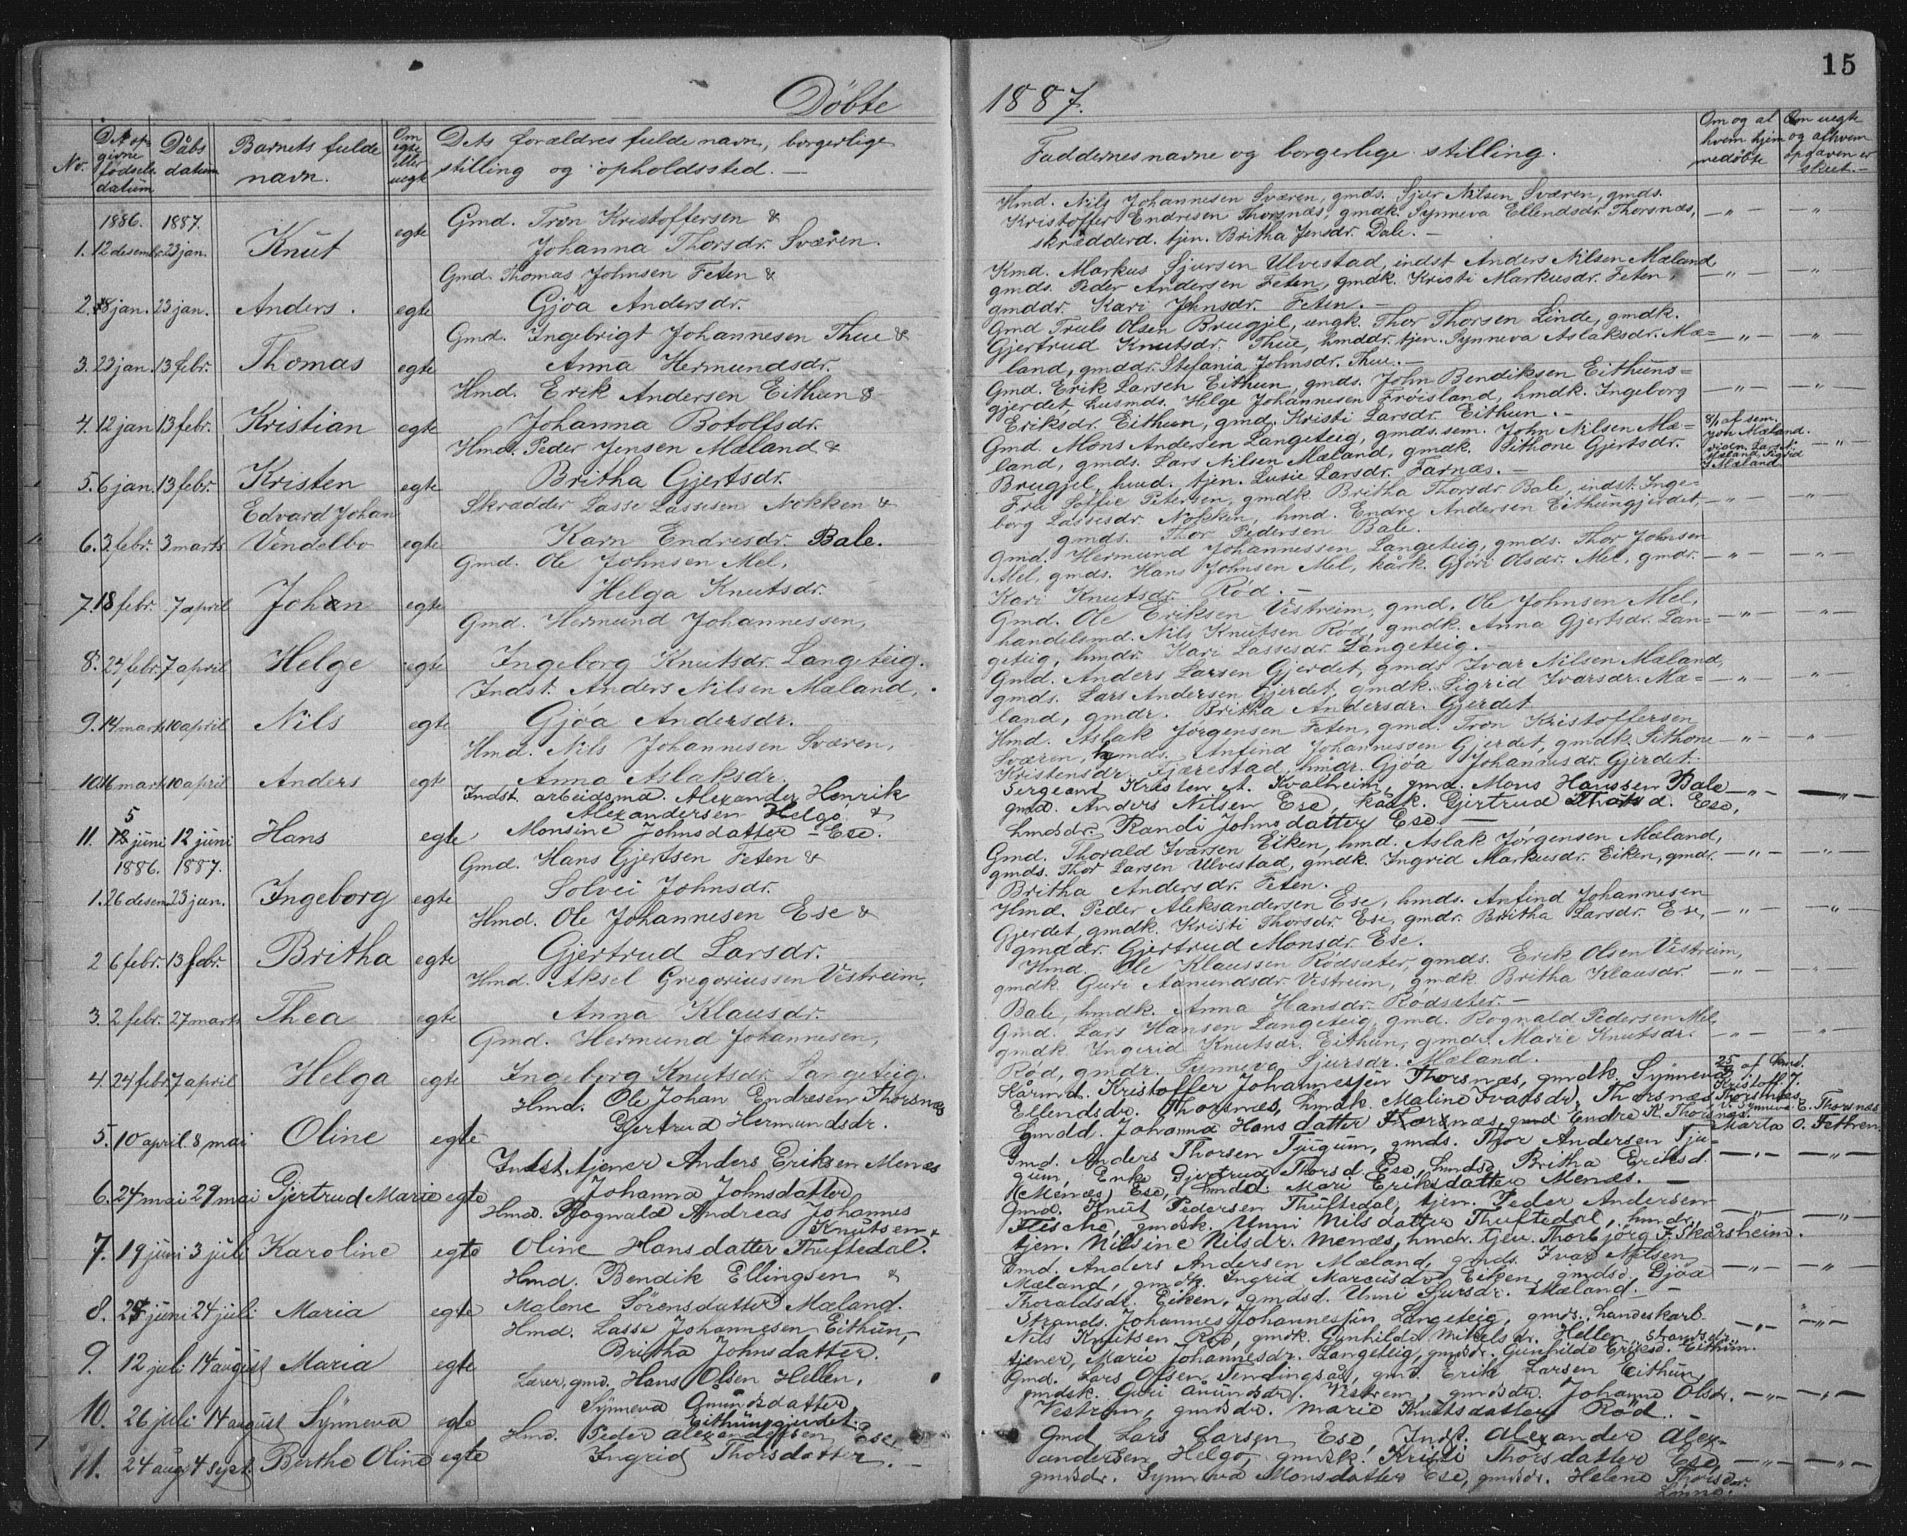 15
Döbte 1887.
No.
Det op-
givne
fødsels
datum
Dåbs
datum
Barnets fulde
navn.
Om
egte
eller
uegte
Dets forældres fulde navn, borgerlige
stilling og opholdssted. —
Faddernes navne og borgerlige stilling.
Om og af
hvem hjem
medøbte
Om uegte
og af hvem
opgaven er
skeet. —
1886. 1887.
1. 12 desembr 23 jan. Knut egte
Gmd. Tron Kristoffersen &
Johanna Thorsdr. Sværen.
Hmd. Nils Johannesen Sværen, gmds. Sjur Nilsen Sværen, gmds.
Kristoffer Endresen Thorsnæs, gmdk. Synneva Ellendsdr. Thorsnæs,
skrædderd. tjen. Britha Jensdr. Dale. —
2. 8 jan. 23 jan. Anders. egte
Gmd. Thomas Johnsen Feten &
Gjøa Andersdr.
Kmd. Markus Sjursen Ulvestad, indst. Anders Nilsen Mæland
gmds. Peder Andersen Feten, gmdk. Kristi Markusdr. Feten,
gmddr. Kari Johnsdr. Feten. —
3. 23 jan. 13 febr. Thomas egte
Gmd. Ingebrigt Johannesen Thue &
Anna Hermundsdr.
Gmd Truls Olsen Brugjil, ungk. Thor Thorsen Linde, gmdk.
Gjertrud Knutsdr. Thue, hmddr. tjen. Synneva Aslaksdr. Mæ=
land, gmddr. Stefania Johnsdr. Thue. —
4. 12 jan 13 febr. Kristian egte
Hmd. Erik Andersen Eithun &
Johanna Botolfsdr.
Gmd. Erik Larsen Eithun, gmds. John Bendiksen Eithuns=
gjerdet, husmds. Helge Johannesen Frøisland, hmdk. Ingeborg
Eriksdr. Eithun, gmd. Kristi Larsdr. Eithun. —
5. 6 jan. 13 febr. Kristen egte
Hmd. Peder Jensen Mæland &
Britha Gjertsdr.
Gmd. Mons Andersen Langeteig, gmds. sem. John Nilsen Mæ=
land, gmds. Lars Nilsen Mæland, gmdk. Sithone Gjertsdr.
Brugjil, hmd. tjen. Lusie Larsdr. Farnæs. —
8/1 af sem.
John Mæland.
6. 3 febr. 3 marts Edvard Johan
Vendelbo egte
Skrædder Lasse Lassesen Nokken &
Karn Endresdr. Bale.
Fru Solfie Petersen, gmdk Britha Thorsdr Bale, indst. Inge=
borg Lassesdr. Nokken, hmd. Endre Andersen Eithungjerdet,
gmds. Thor Pedersen Bale.
7. 18 febr. 7 april Johan egte
Gmd. Ole Johnsen Mel,
Helga Knutsdr.
Gmd. Hermund Johannessen Langeteig, gmds. Thor Johnsen
Mel, gmds. Hans Johnsen Mel, kårk. Gjøri Olsdr. Mel, gmdr.
Kari Knutsdr. Rød. —
8. 24 febr. 7 april Helge egte
Gmd. Hermund Johannessen,
Ingeborg Knutsdr. Langeteig.
Gmd. Ole Eriksen Vestreim, gmd. Ole Johnsen Mel,
handelsmd. Nils Knutsen Rød, gmdk. Anna Gjertsdr. Lan=
geteig, hmdr. Kari Lassesdr. Langeteig. —
9. 14 marts 10 april Nils egte
Indst. Anders Nilsen Mæland,
Gjøa Andersdr.
Gmd. Anders Larsen Gjerdet, gmds Ivar Nilsen Mæland,
gmds. Lars Andersen Gjerdet, gmdk. Sigrid Ivarsdr. Mæ=
land, gmdr. Britha Andersdr. Gjerdet
10. 16 marts 10 april Anders egte
Hmd. Nils Johannesen Sværen,
Anna Aslaksdr.
Hmd. Aslak Jørgensen Feten, gmd. Tron Kristoffersen
Sværen, hmds. Anfind Johannessen Gjerdet, gmdk. Sithone
Kristensdr. Fjærestad, hmdr. Gjøa Johannesdr. Gjerdet.
5
11. 18 juni 12 juni Hans egte
Indst. arbeidsmd. Alexander Henrik
Alexandersen Helgo &
Monsine Johnsdatter — Ese.
Sergeant Kristen A. Kvalheim, gmd. Mons Hanssen Bale
gmd. Anders Nilsen Ese, kårk. Gjertrud Thorsd. Ese,
hmdsdr. Randi Johnsdatter Ese. —
1886. 1887.
1. 26 desem 23 jan. Ingeborg egte
Gmd. Hans Gjertsen Feten &
Solvei Johnsdr.
Gmd. Thorald Ivarsen Eiken, hmd. Aslak Jørgensen Mæland,
gmds. Thor Larsen Ulvestad, gmdk Ingrid Markusdr. Eiken, gmdr.
Britha Andersdr. Feten.
2 6 febr. 13 febr. Britha egte
Hmd. Ole Johannesen Ese &
Gjertrud Larsdr.
Hmd. Peder Aleksandersen Ese, hmds. Anfind Johannesen
Gjerdet, gmdk. Kristi Thorsdr. Ese, gmdr. Britha Larsdr. Ese,
gmddr. Gjertrud Monsdr. Ese.
3. 2 febr. 27 marts Thea egte
Hmd. Aksel Gregoriussen Vestreim,
Anna Klausdr.
Hmd. Ole Klaussen Rødsæter, gmds. Erik Olsen Vestreim,
gmdk Guri Aamundsdr. Vestreim, gmdk Britha Klausdr.
Bale, hmdk. Anna Hansdr. Rødsæter. —
4. 24 febr 7 april Helga egte
Gmd. Hermund Johannesen,
Ingeborg Knutsdr. Langeteig.
Gmd. Lars Hansen Langeteig, gmd. Rognald Pedersen Mel,
gmdk Ingerid Knutsdr. Eithun, gmdr. Marie Knutsdr.
Rød, gmdr. Synneva Sjursdr. Mæland.
5. 10 april 8 mai Oline egte
Hmd. Ole Johan Endresen Thorsnæs
Gjertrud Hermundsdr.
Kårmd. Kristoffer Johannessen Thorsnæs, gmdk. Synneva
Ellendsdr. Thorsnæs, hmdk. Maline Ivarsdr, Thorsnæs,
hmdd. Johanna Hansdatter Thorsnæs, gmd Endre K. Thorsnæs.
Kristoff. J.
Thorsnæs
Synneva E. Thorsnæs
Marta O. Fethen
6. 24 mai 29 mai Gjertrud Marie egte
Indst. tjener Anders Eriksen Menæs
Johanna Johnsdatter
Gmd. Anders Thorsen Tjugum, gmds. Thor Andersen Tju-
gum, Enke Gjertrud Thorsd. Ese, hmdsd Britha Eriksd
(Menæs) Ese, hmdd. Mari Eriksdatter Menæs. —
7. 19 juni 3 juli Karoline egte
Hmd. Rognald Andreas Johannes
Knutsen &
Oline Hansdatter Thuftedal.
Gmd. Knut Pedersen Thuftedal, tjen. Peder Andersen
Flische, gmdsk. Unni Nilsdatter Thuftedal, hmdr.
tjen. Nilsine Nilsdr. Menæs, hmdr. Gev. Thorbjørg J. Skarsheim.
8. 25 juni 24 juli Maria egte
Hmd. Bendik Ellingsen &
Malene Sørensdatter Mæland.
Gmd. Anders Andersen Mæland, gmds. Ivar Nilsen
Mæland, gmdk Ingrid Marcusdr Eiken, gmdsd Gjøa
Thoraldsdr. Eiken, gmdsd. Unni Sjursdr. Mæland. —
9. 12 juli 14 august Maria egte
Hmd. Lasse Johannesen Eithun,
Britha Johnsdatter.
Strands. Johannes Johannessen Langeteig, gmds., handeskarl
Nils Knutsen Rød, gmdk. Gunhilda Mikelsdr. Hellen, strandsdr.
tjener, Marie Johannesdr. Langeteig, gmdsdr. Gunhilda Eriksd. Eithun.
10. 26 juli 14 august Synneva egte
Lærer, gmd. Hans Olsen Hellen,
Synneva Amundsdatter
Eithungjerdet.
Gmd. Lars Olsen Tendingsås, gmd. Erik Larsen Eithun,
gmdsk. Guri Amundsdr. Vestrem, gmdsdr. Johanne Olsdr.
Vestrem, gmdsdr. Marie Knutsdatter Rød. —
11. 24 aug 4 sept. Berthe Oline egte
Hmd. Peder Alexandersen Ese,
Ingrid Thorsdatter. —
Gmd Lars Larsen Ese, Indst. Alexander Alex-
andersen Helgo, gmdsk. Kristi Thorsdatter Ese,
gmdsdr. Synneva Monsdatter Ese, gmdsdr. Helene Thorsdr.
Linne.